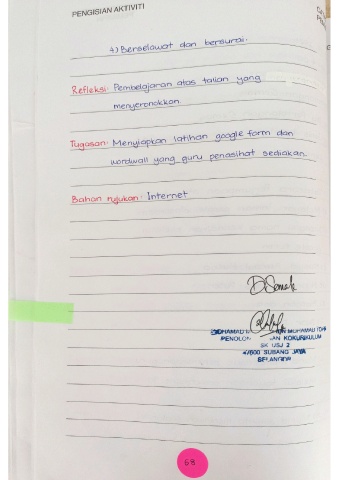 PENGISIAN AKTIVITI
4) Berselawat dan bersurai.
Refleksi: Pembelajaran atas talian yang
menyeronokkan
Tugasan: Menyiapkan latihan google form dan
wordwall yang guru penasihat sediakan.
Bahan rujukan: Internet
D.Semak
MUHAMAD
PENOLON AN KOKURIKULUM
SK USJ 2
47600 SUBANG JAYA
SELANGOR
68